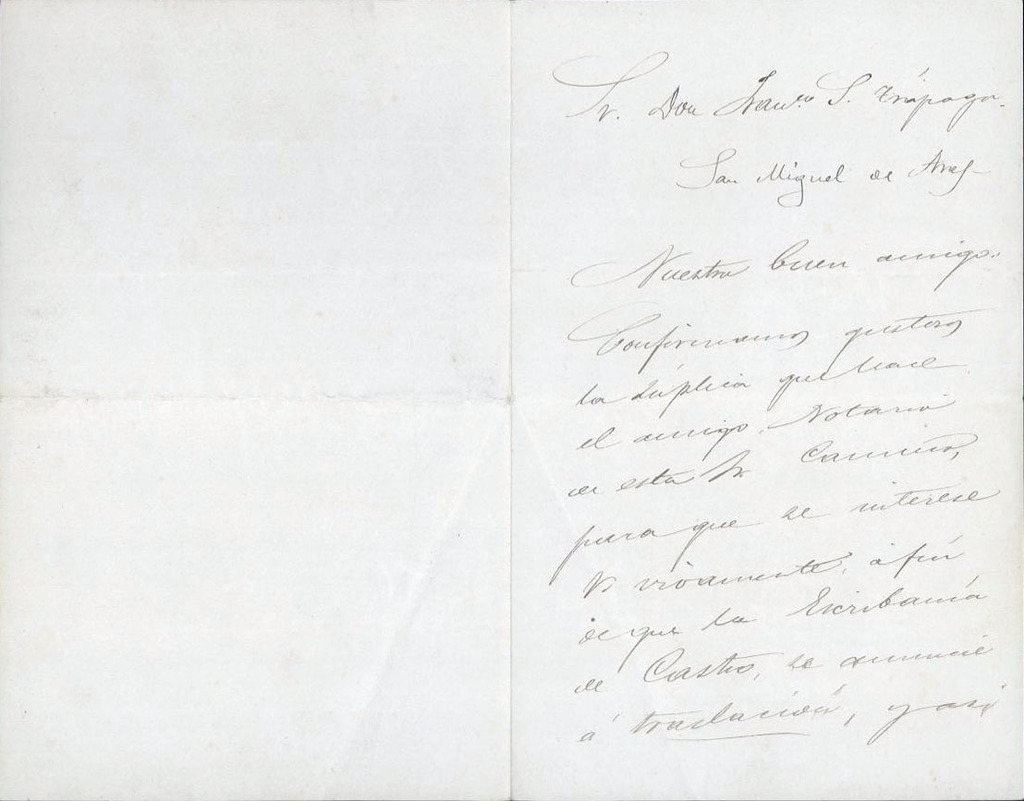 Sr. Don Franco S. Trápaga.
San Miguel de Aras
Nuestro buen amigo.
Confirmamos gustosos
la súplica que hace
el amigo, Notario
de esta Sr.
para que se interese
V. vivamente, á fin
de que la Escribanía
de Castro, se anuncie
á traslación, y asi